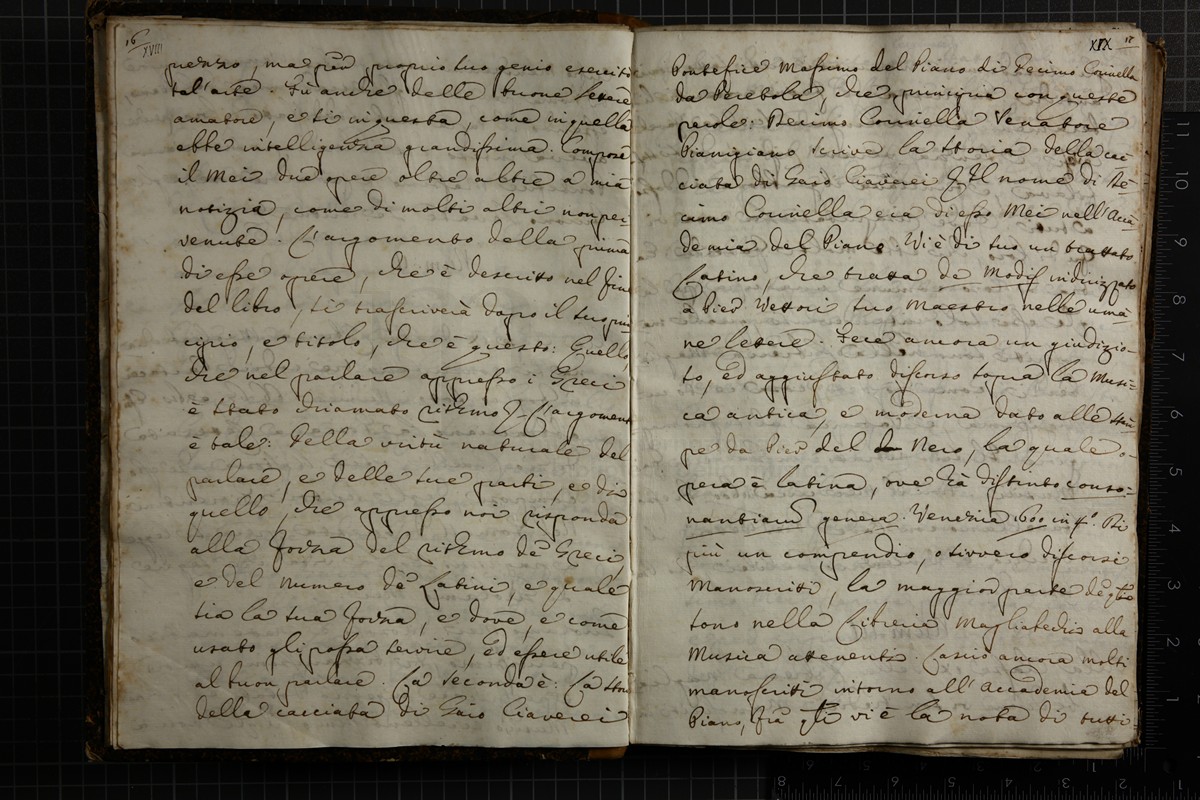 16
XVIII
prezzo, ma per proprio suo genio esercitò
tal'arte. Fù anche delle buone lettere
amatore, e sì in questa, come in quella
ebbe intelligenza grandissima. Compose
il Mei due opere oltre altre a mia
notizia, come di molti altri non per
venute. L'argomento della prima
di esse opere, che è descritto nel fine
del libro, si trascriverà dopo il suo prin
cipio, e titolo, che è questo: Quello,
che nel parlare appresso i Greci
è stato chiamato ritmo. L'argoment
è tale: Della virtù naturale del
parlare, e delle sue parti, e di
quello, che appresso noi risponda
alla forza del ritmo de' Greci
e del numero de' Latini, e quale
sia la sua forza, e dove, e come
usato gli possa servire, ed essere utile
al buon parlare. La seconda è: La Stori
della cacciata di Gaio Claverei
XIX 17
Pontefice Massimo del Piano di Decimo Corinella
da Peretola, che principia con queste
parole: Decimo Corinella Venatore
Pianigiano scrive la storia della cac
ciata di Gaio Claverei. Il nome di De-
cimo Corinella era di esso Mei nell'Acca
demia del Piano. Vi è di suo un trattato
Latino, che tratta de Modis indirizzato
a Pier Vettori suo Maestro nelle uma-
ne lettere. Fece ancora un giudizio-
so, ed aggiustato discorso sopra la Musi-
ca antica, e moderna dato alle stam
pe da Pier del Nero, la quale o-
pera è latina, ove hà distinto conso-
nantiarum genera. Venezia 1600 in 4°. Di
più un compendio, o sivvero discorsi
Manoscritti, la maggior parte de' quali
sono nella Libreria Magliabechi alla
Musica attenenti. Lasciò ancora molti
manoscritti intorno all'Accademia del
Piano, frà quali vi è la nota di tutti